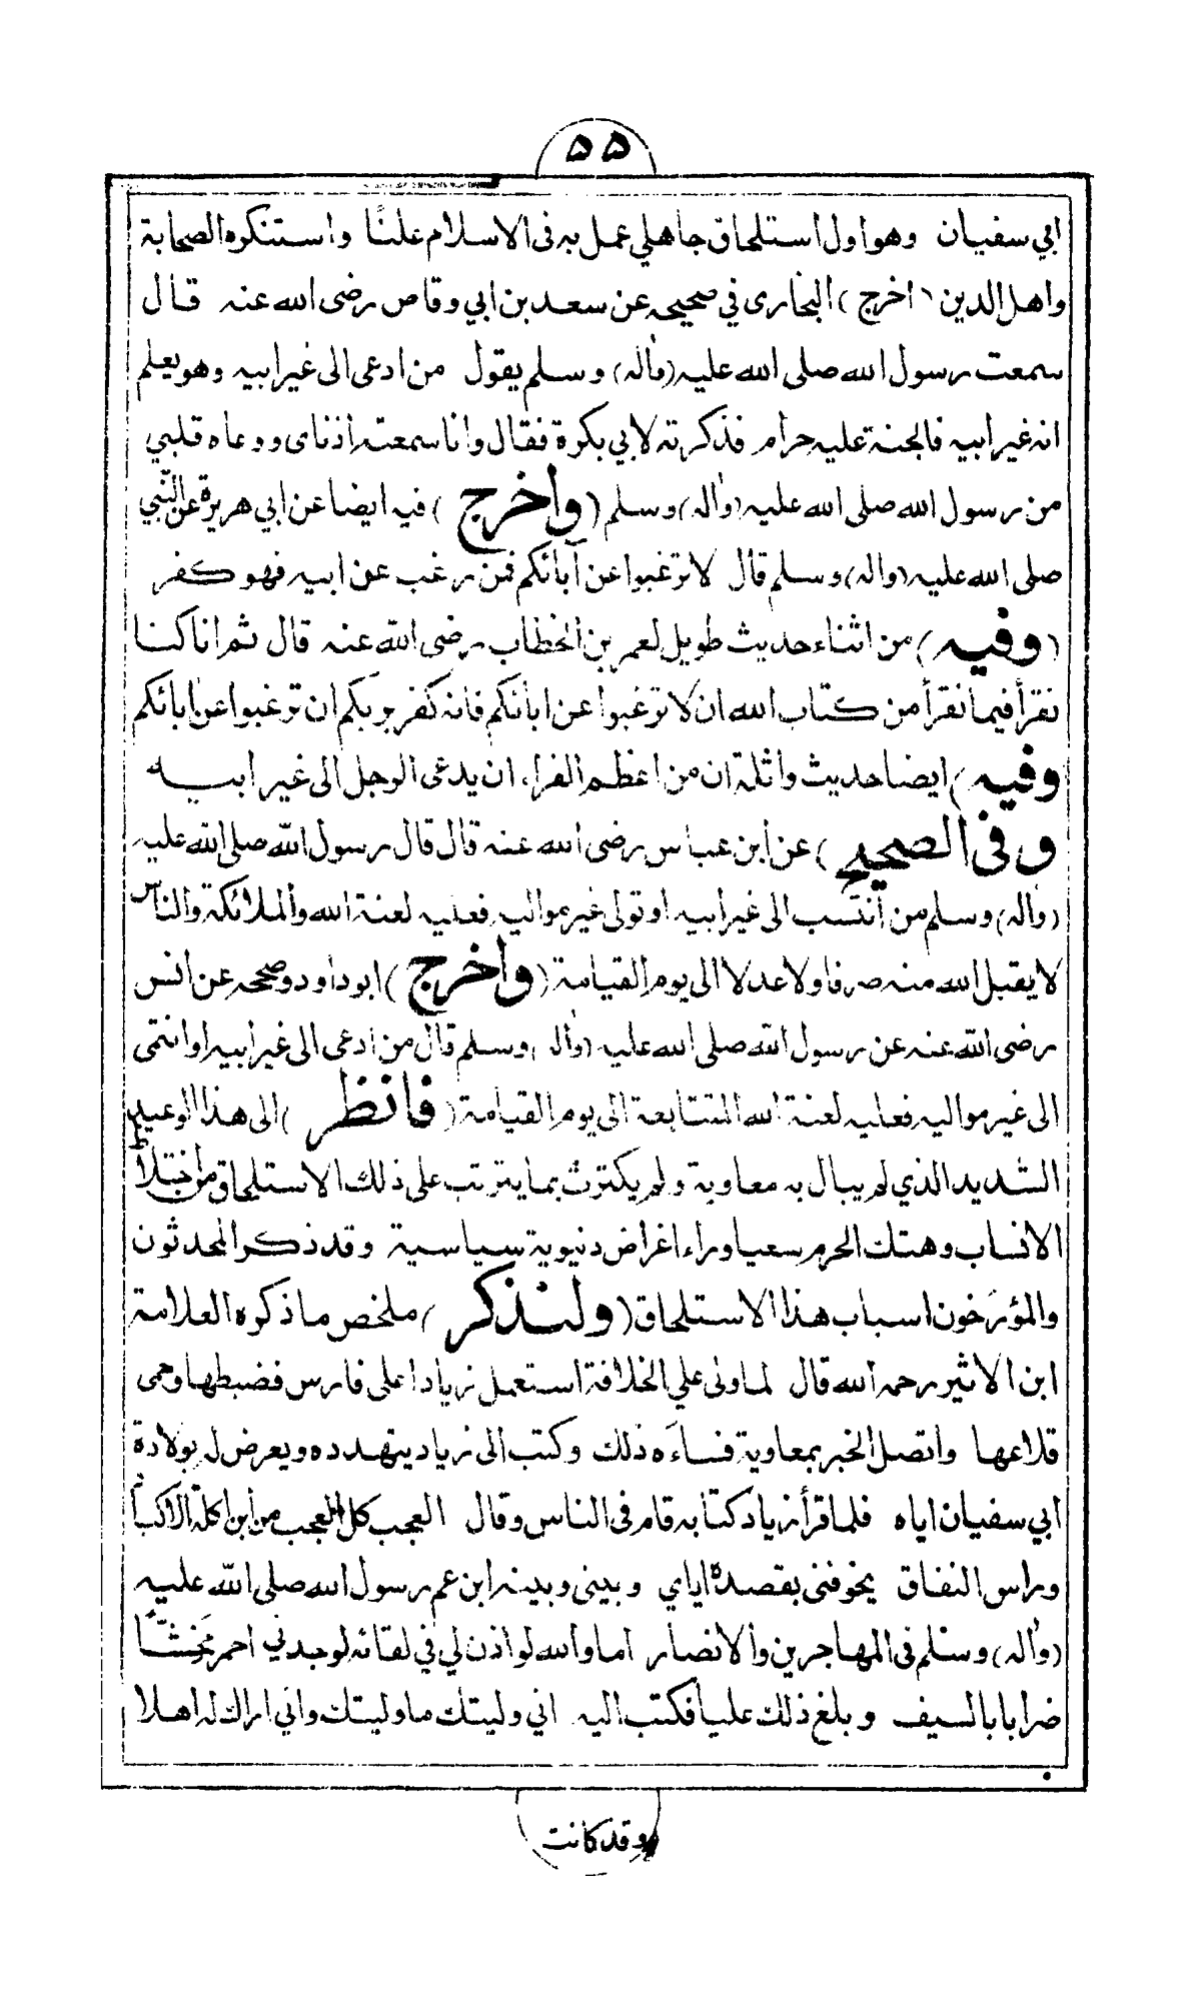 ٥٥
ابي سفيان وهو اول استلحاق جاهلي عمل به فى الاسلام علنًا واستنكره الصحابة
واهل الدين (اخرج) البخارى في صحيحه عن سعد بن ابي وقاص رضى الله عنه قال
سمعت رسول الله صلى الله عليه (واله) وسلم يقول من ادعى الى غير ابيه وهو يعلم
انه غير ابيه فالجنة عليه حرام فذكرته لابي بكرة فقال وانا سمعته اذناى ووعاه قلبي
من رسول الله صلى الله عليه (واله) وسلم (واخرج) فيه ايضا عن ابي هريرة عن النّبي
صلى الله عليه (واله) وسلم قال لا ترغبوا عن آبائكم فمن رغب عن ابيه فهو كفر
(وفيه) من اثناء حديث طويل لعمر بن الخطاب رضى الله عنه قال ثم انا كنا
نقرأ فيما نقرأ من كتاب الله ان لا ترغبوا عن ابائكم فانه كفر بربكم ان ترغبوا عن ابائكم
وفيه) ايضا حديث واثلة ان من اعظم الفراء ان يدعى الرجل الى غير ابيه
وفى الصحيح) عن ابن عباس رضى الله عنه قال قال رسول الله صلى الله عليه
(واله) وسلم من انتسب الى غير ابيه او تولى غير مواليه فعليه لعنة الله والملائكة والناس
لا يقبل الله منه صرفا ولا عدلا الى يوم القيامة (واخرج) ابو داود وصححه عن انس
رضى الله عنه عن رسول الله صلى الله عليه (واله) وسلم قال من ادعى الى غير ابيه او انتمى
الى غير مواليه فعليه لعنة الله المتتابعة الى يوم القيامة (فانظر) الى هذا الوعيد
الشديد الذي لم يبال به معاوية ولم يكترث بما يترتب على ذلك الاستلحاق من اختلاط
الانساب وهتك الحرم سعيا وراء اغراض دنيوية سياسية وقد ذكر المحدثون
والمؤرخون اسباب هذا الاستلحاق (ولنذكر) ملخص ما ذكره العلامة
ابن الاثير رحمه الله قال لما ولى علي الخلافة استعمل زيادا على فارس فضبطها وحمى
قلاعها واتصل الخبر بمعاوية فساءه ذلك وكتب الى زياد يتهدده ويعرض له بولادة
ابي سفيان اياه فلما قرأ زياد كتابه قام فى الناس وقال العجب كل العجب من ابن اكلة الاكباد
وراس النفاق يخوفنى بقصده اياي وبينى وبينه ابن عم رسول الله صلى الله عليه
(واله) وسلم فى المهاجرين والانصار اما والله لو اذن لي في لقائه لوجدني احمر مخشّا
ضرابا بالسيف وبلغ ذلك عليا فكتب اليه اني وليتك ما وليتك واني اراك له اهلا
وقد كانت